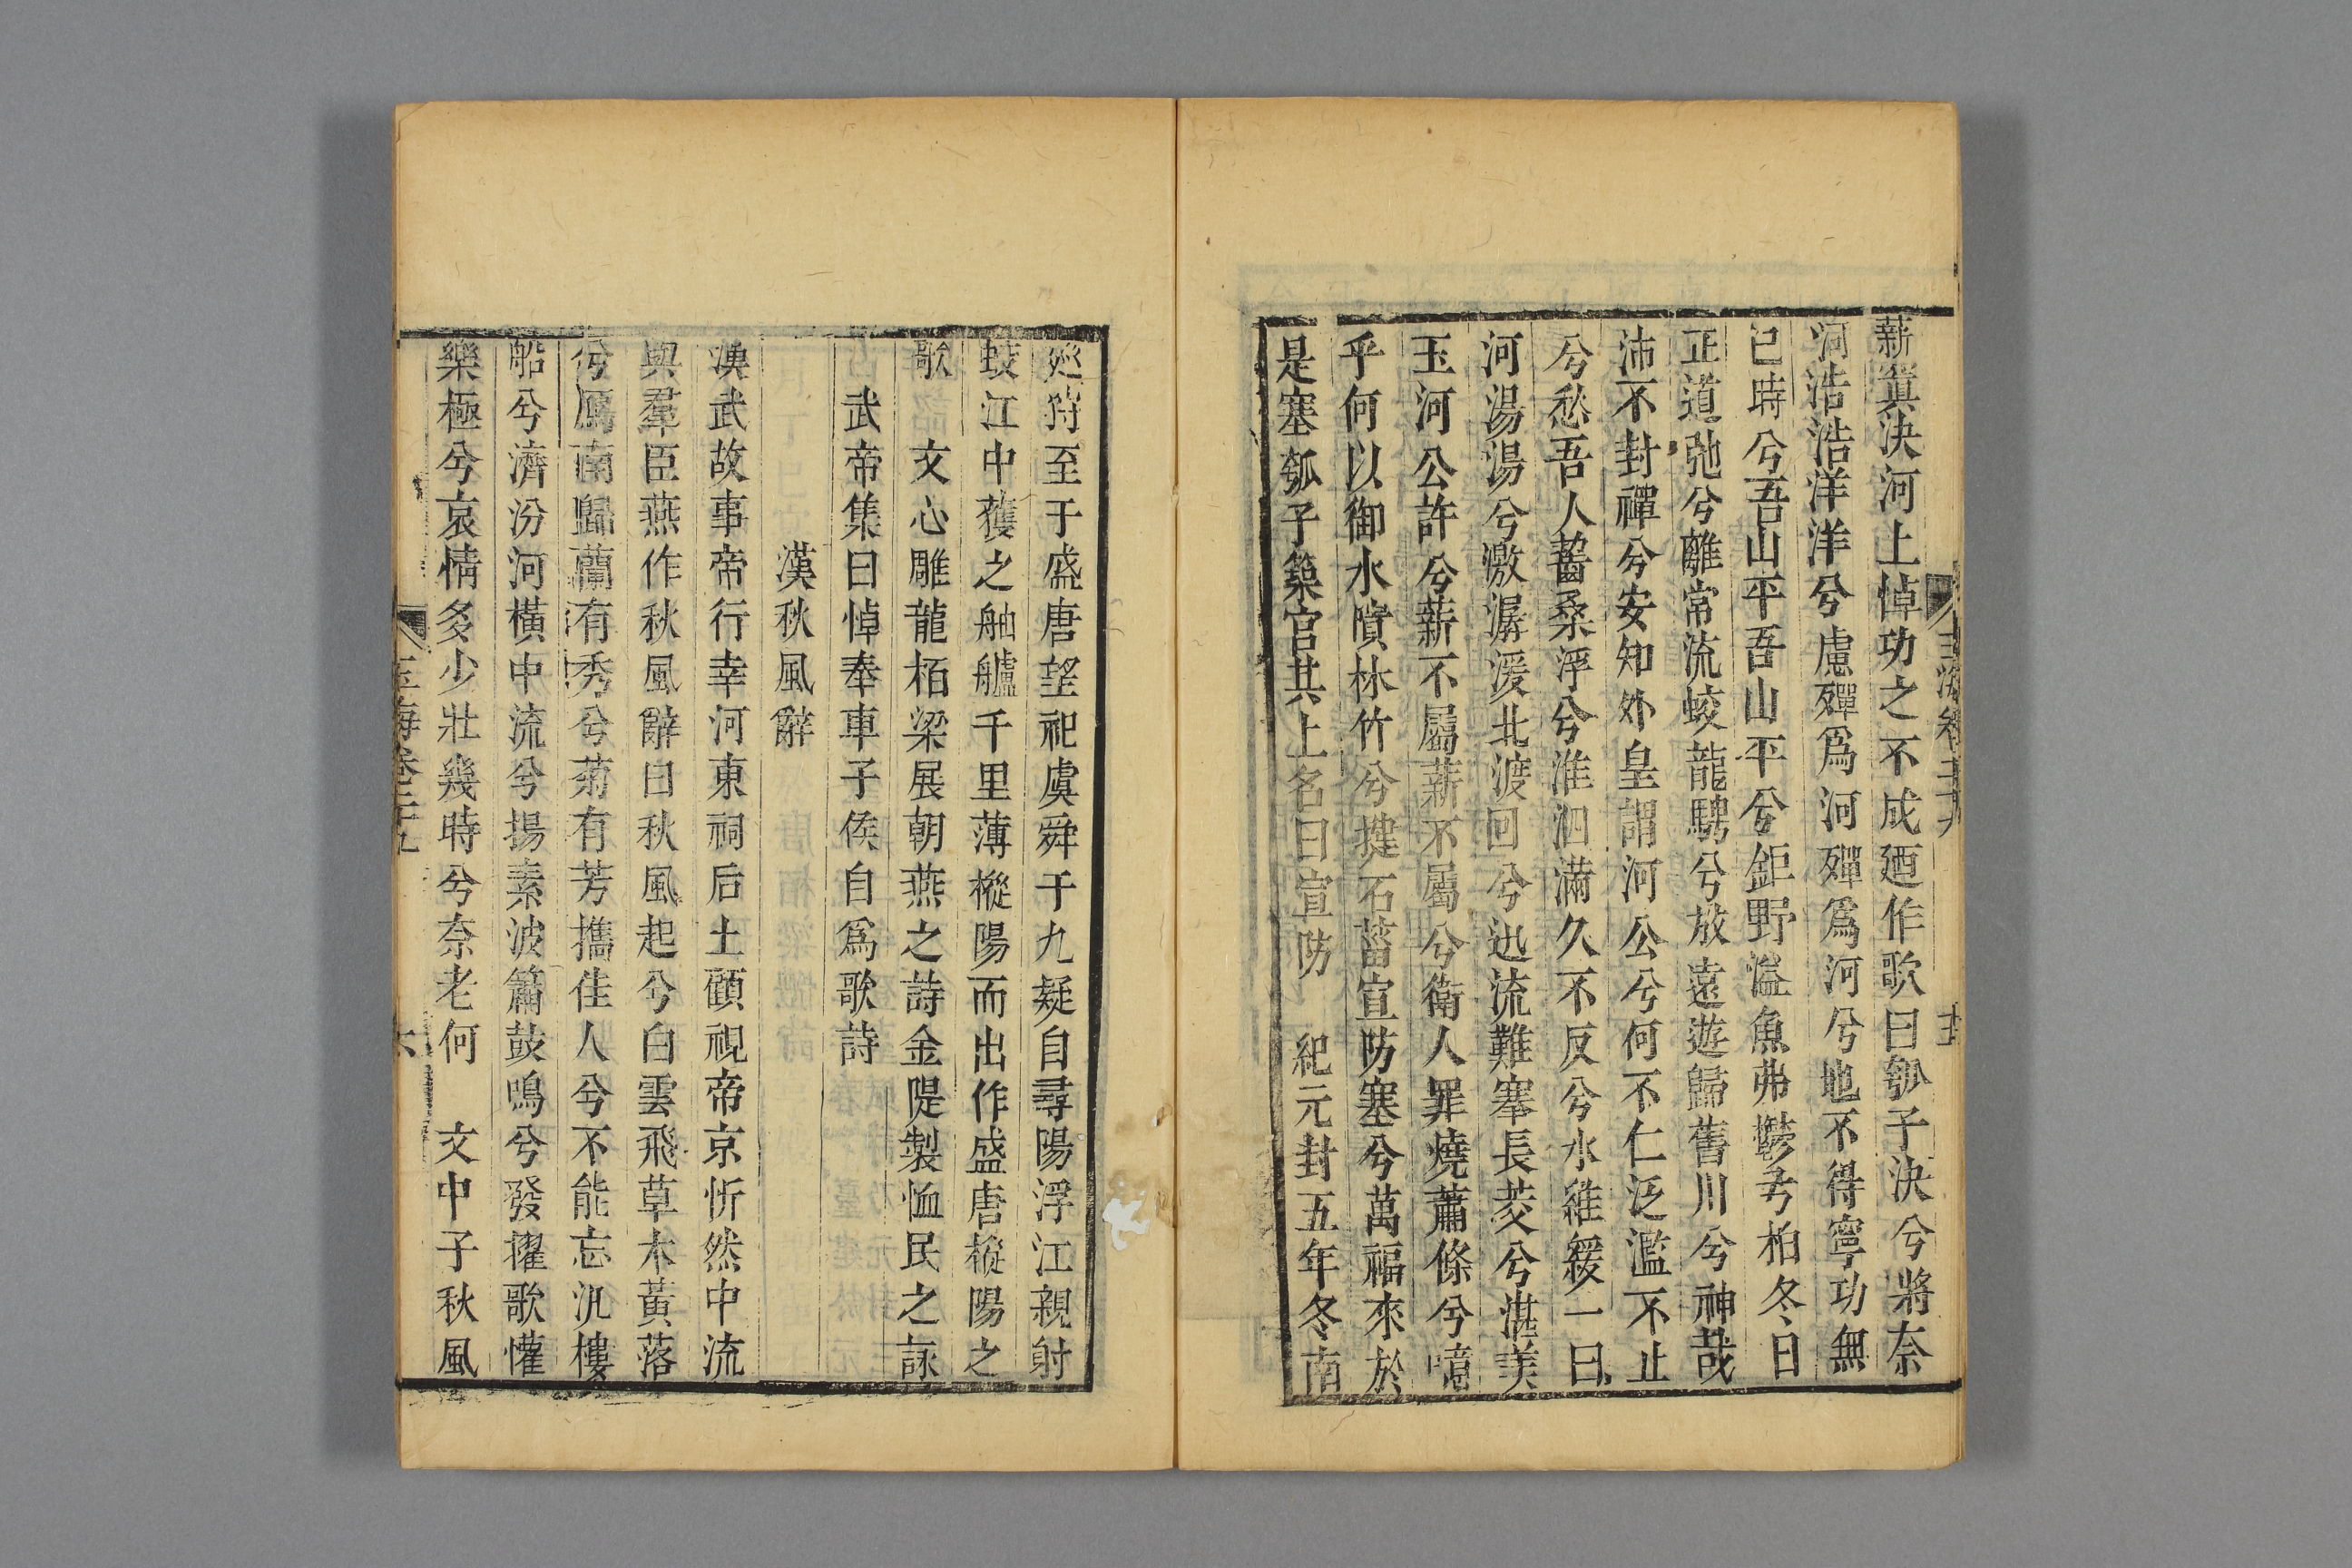 玉海卷二十九
薪窴決河上悼功之不成廼作歌曰瓠子決兮將奈
河浩浩洋洋兮慮殫爲河殫爲河兮地不得寧功無
已時兮吾山平吾山平兮鉅野溢魚弗鬱兮柏冬日
正道弛兮離常流蛟龍騁兮放遠遊歸舊川兮神哉
沛不封禪兮安知外皇謂河公兮何不仁泛濫不止
兮愁吾人齧桑浮兮淮泗滿久不反兮水維緩一曰
河湯湯兮激潺湲北渡回兮迅流難搴長茭兮湛美
玉河公許兮薪不屬薪不屬兮衛人罪燒蕭條兮噫
乎何以御水隤林竹兮揵石菑宣防塞兮萬福來於
是塞瓠子築宮其上名曰宣防　紀元封五年冬南
廵狩至于盛唐望祀虞舜于九疑自尋陽浮江親射
蛟江中獲之舳艫千里薄樅陽而出作盛唐樅陽之
歌　文心雕龍栢梁展朝燕之詩金隄製恤民之詠
武帝集曰悼奉車子侯自爲歌詩
漢秋風辭
漢武故事帝行幸河東祠后土顧視帝京忻然中流
與羣臣燕作秋風辭曰秋風起兮白雲飛草木黃落
兮鴈南歸蘭有秀兮菊有芳攜佳人兮不能忘汎樓
船兮濟汾河橫中流兮揚素波簫鼓鳴兮發擢歌懽
樂極兮哀情多少壯幾時兮奈老何　文中子秋風
玉海卷二十九
六